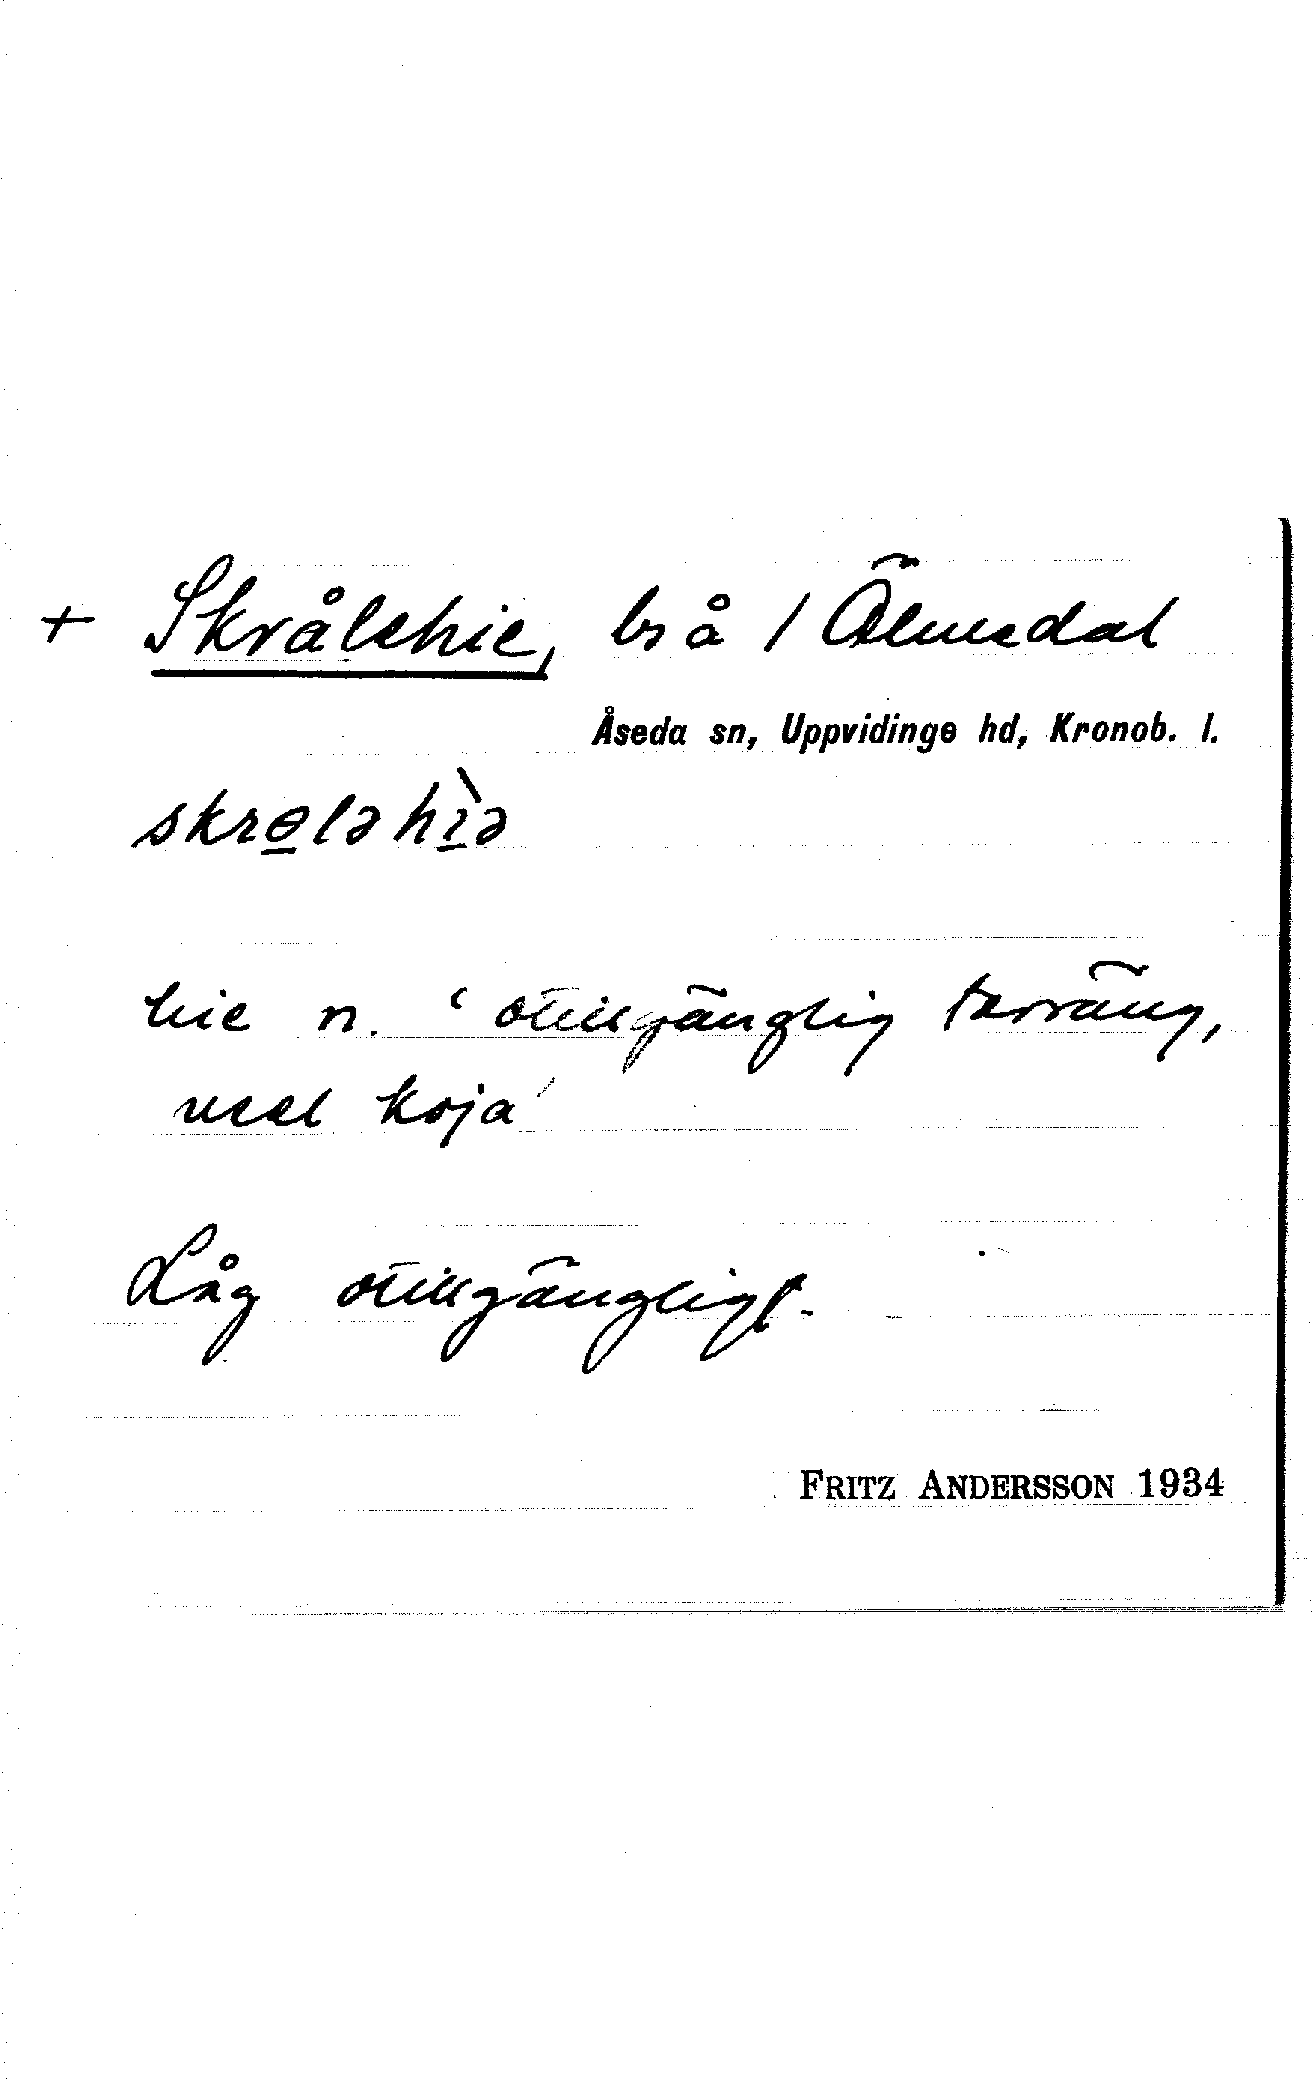 + Skrålehie, bs å 1 Älmedal
Åseda sn, Uppvidinge hd, Kronob. l.
skrɵləhìə
hie n. ‘otillgänglig terräng,
usel koja’
Låg otillgängligt.
FRITZ ANDERSSON 1934